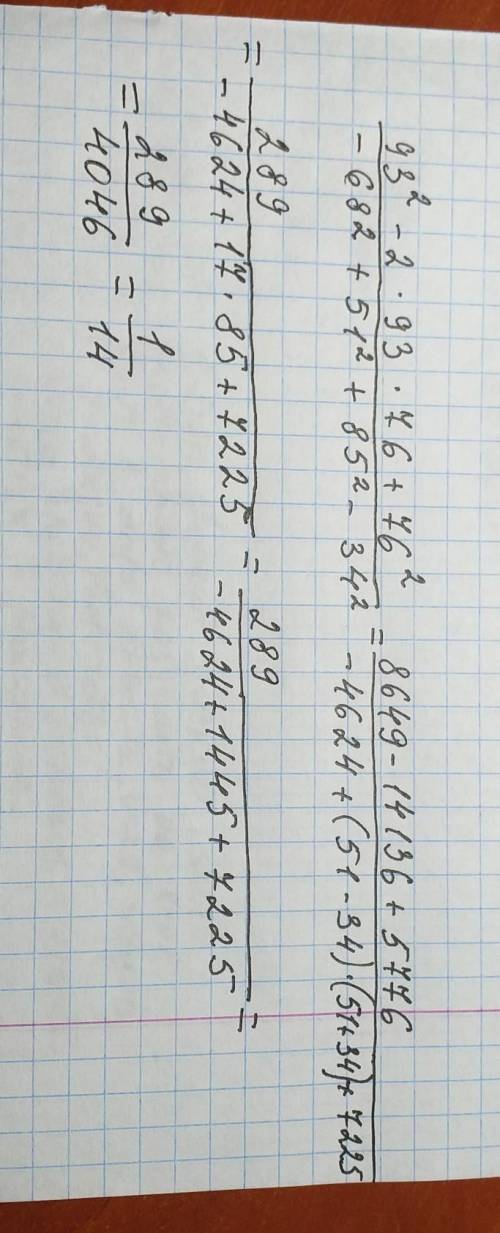 93² - 2 · 93 · 76 + 76² / -68² + 51² + 85² - 34² = 8649 - 14136 + 5776 / -4624 + (51-34)·(51+34)+7225
= 289 / -4624 + 17 · 85 + 7225 = 289 / -4624 + 1445 + 7225 =
= 289 / 4046 = 1 / 14